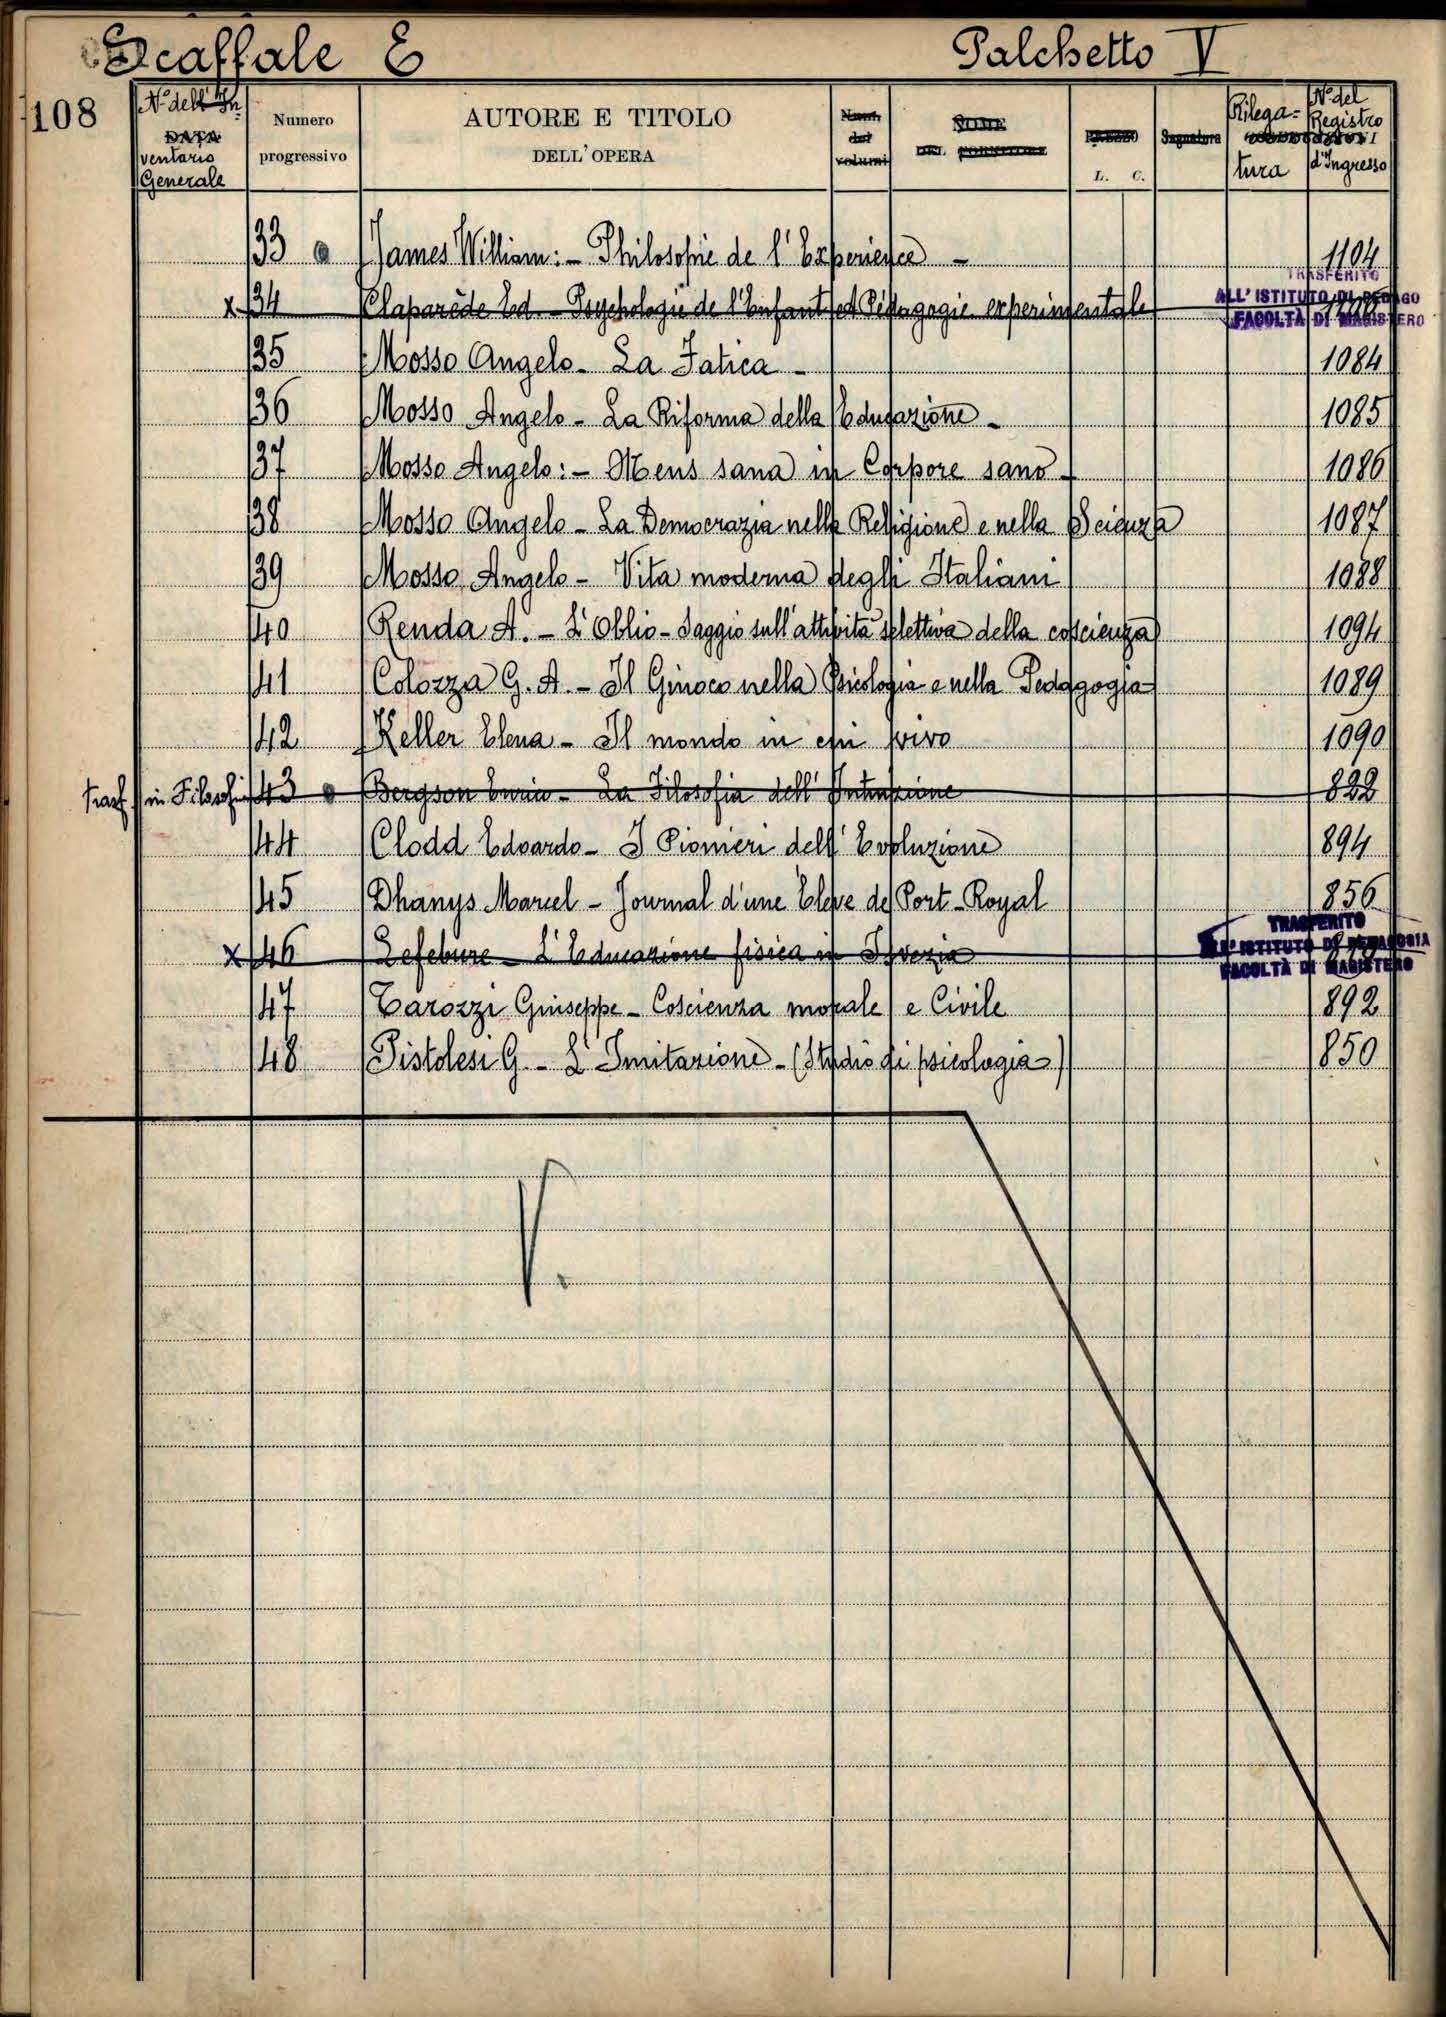 Scaffale E Palchetto V
108
N.° dell' In
DATA
ventario
Generale
Numero
progressivo
AUTORE E TITOLO
DELL'OPERA
Num.
dei
volumi
NOME
DEL FORNITORE
PREZZO
L. C.
Segnatura
Rilega=
tura
N.° del
Registro
d'Ingresso
33 James William: - Philosophie de l'Experience - 1104
TRASFERITO
x 34 Claparède Ed. - Psychologie de l'Enfant et Pédagogie experimentale
ALL' ISTITUTO DI PEDAGO
FACOLTÀ DI MAGISTERO
35 Mosso Angelo - La Fatica - 1084
36 Mosso Angelo - La Riforma della Educazione - 1085
37 Mosso Angelo: - Mens sana in Corpore sano - 1086
38 Mosso Angelo - La Democrazia nella Religione e nella Scienza 1087
39 Mosso Angelo - Vita moderna degli Italiani 1088
40 Renda A. - L'Oblio - Saggio sull'attività selettiva della coscienza 1094
41 Colozza G. A. - Il Ginoco nella Psicologia e nella Pedagogia 1089
42 Keller Elena - Il mondo in cui vivo 1090
trasf. in Filosofia 43 Bergson Enrico - La Filosofia dell'Intuizione 822
44 Clodd Edoardo - I Pionieri dell'Evoluzione 894
45 Dhanys Marcel - Journal d'une Eleve de Port-Royal 856
TRASFERITO
x 46 Lefebure - L'Educazione fisica in Isvezia
ALL' ISTITUTO DI PEDAGOGIA
FACOLTÀ DI MAGISTERO
47 Tarozzi Giuseppe - Coscienza morale e Civile 892
48 Pistolesi G. - L'Imitazione - (Studio di psicologia) 850
V.